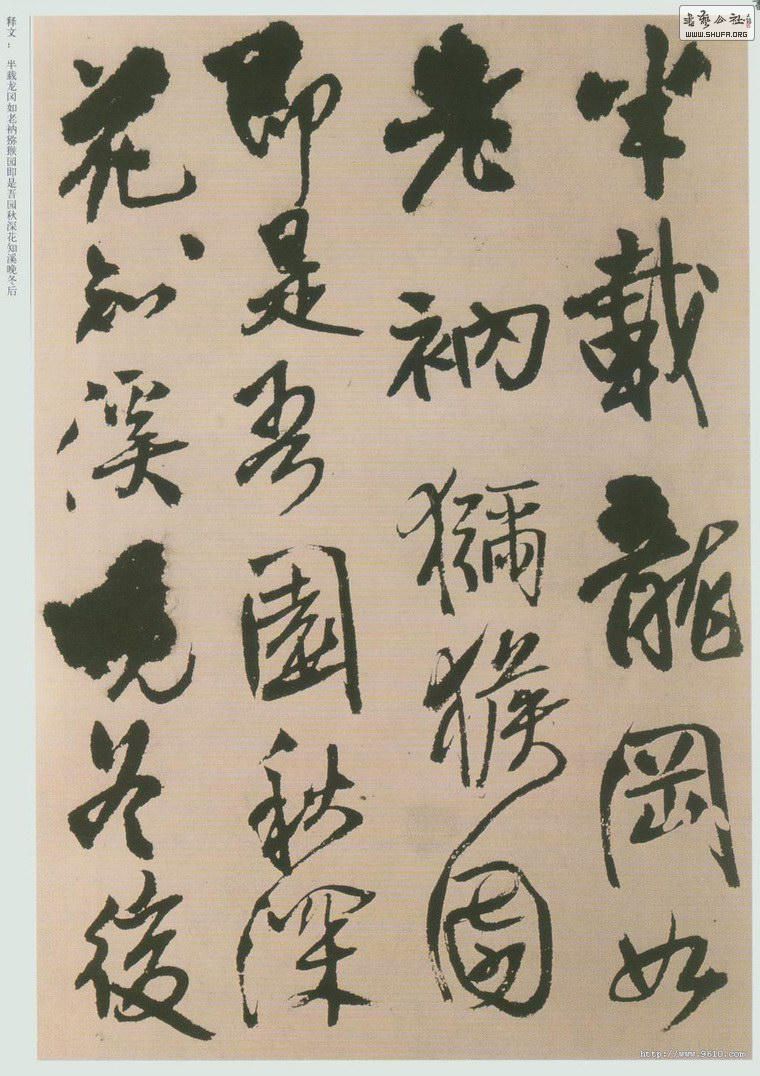 半載龍岡如
老衲獼猴園
即是吾園秋深
花知溪晚冬後
释文： 半载龙冈如老衲猕猴园即是吾园秋深花知溪晚冬后
書藝公社
WWW.SHUFA.ORG
http://www.9610.com